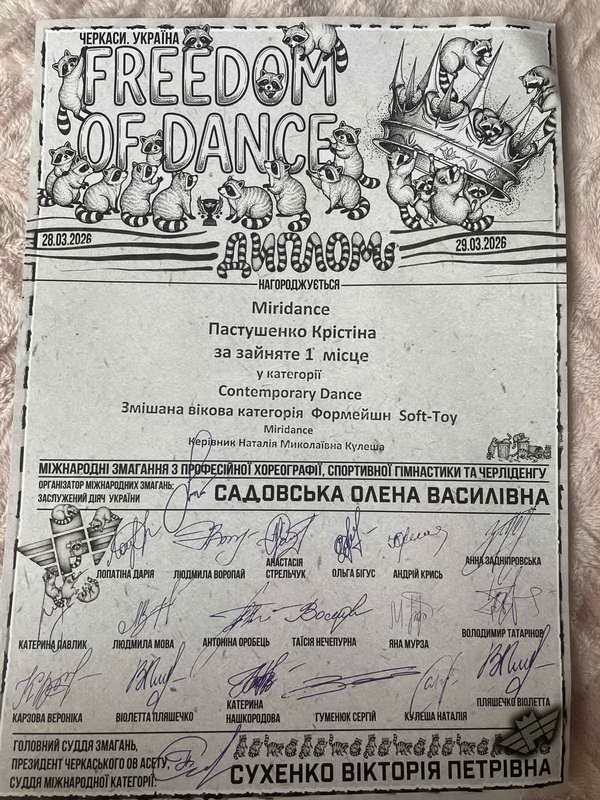 ЧЕРКАСИ. УКРАЇНА
FREEDOM
OF DANCE
28.03.2026
29.03.2026
ДИПЛОМ
НАГОРОДЖУЄТЬСЯ
Miridance
Пастушенко Крістіна
за зайняте 1 місце
у категорії
Contemporary Dance
Змішана вікова категорія Формейшн Soft-Toy
Miridance
Керівник Наталія Миколаївна Кулеша
МІЖНАРОДНІ ЗМАГАННЯ З ПРОФЕСІЙНОЇ ХОРЕОГРАФІЇ, СПОРТИВНОЇ ГІМНАСТИКИ ТА ЧЕРЛІДЕНГУ
ОРГАНІЗАТОР МІЖНАРОДНИХ ЗМАГАНЬ:
ЗАСЛУЖЕНИЙ ДІЯЧ УКРАЇНИ
САДОВСЬКА ОЛЕНА ВАСИЛІВНА
ЛОПАТІНА ДАРІЯ
ЛЮДМИЛА ВОРОПАЙ
АНАСТАСІЯ
СТРЕЛЬЧУК
ОЛЬГА БІГУС
АНДРІЙ КРИСЬ
АННА ЗАДНІПРОВСЬКА
КАТЕРИНА ПАВЛИК
ЛЮДМИЛА МОВА
АНТОНІНА ОРОБЕЦЬ
ТАЇСІЯ НЕЧЕПУРНА
ЯНА МУРЗА
ВОЛОДИМИР ТАТАРІНОВ
КАРЗОВА ВЕРОНІКА
ВІОЛЕТТА ПЛЯШЕЧКО
КАТЕРИНА
НАШКОРОДОВА
ГУМЕНЮК СЕРГІЙ
КУЛЕША НАТАЛІЯ
ПЛЯШЕЧКО ВІОЛЕТТА
ГОЛОВНИЙ СУДДЯ ЗМАГАНЬ,
ПРЕЗИДЕНТ ЧЕРКАСЬКОГО ОВ АСЕТУ,
СУДДЯ МІЖНАРОДНОЇ КАТЕГОРІЇ:
СУХЕНКО ВІКТОРІЯ ПЕТРІВНА